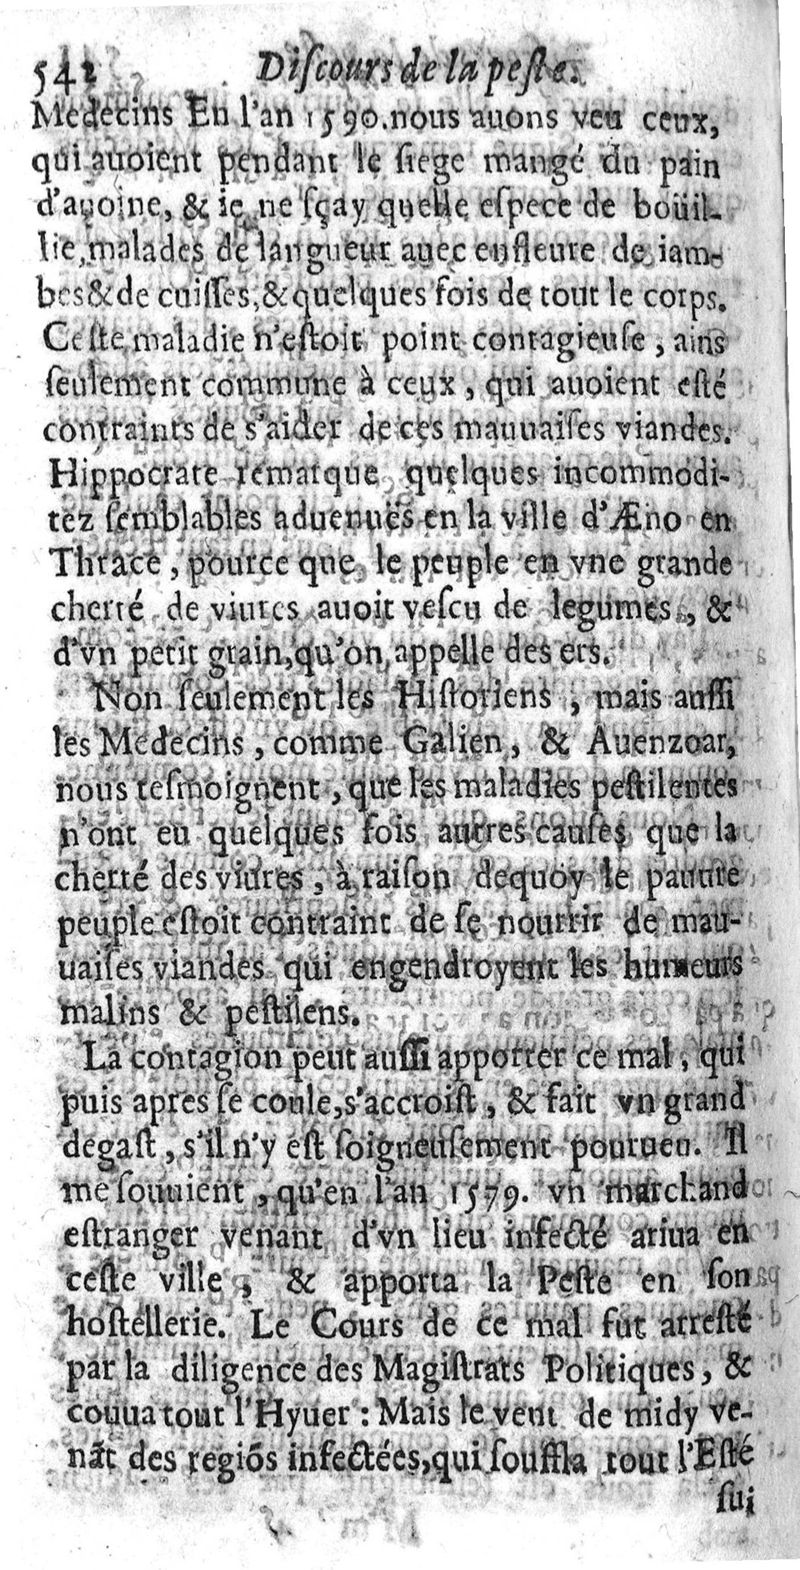 542 Diſcours de la peſte.
Medecins En l'an 1590. nous auons veu ceux,
qui auoient pendant le ſiege mangé du pain
d'auoine, & ie ne ſçay quelle eſpece de boüil-
lie, malades de langueur auec enfleure de iam-
bes & de cuiſſes, & quelques fois de tout le corps.
Ceſte maladie n'eſtoit point contagieuſe, ains
ſeulement commune à ceux, qui auoient eſté
contraints de s'aider de ces mauuaiſes viandes.
Hippocrate remarque quelques incommodi-
tez ſemblables aduenuës en la ville d'Æno en
Thrace, pource que le peuple en vne grande
cherté de viures auoit veſcu de legumes, &
d'vn petit grain, qu'on appelle des ers.
Non ſeulement les Hiſtoriens, mais auſſi
les Medecins, comme Galien, & Auenzoar,
nous teſmoignent, que les maladies peſtilentes
n'ont eu quelques fois autres cauſes que la
cherté des viures, à raiſon dequoy le pauure
peuple eſtoit contraint de ſe nourrir de mau-
uaiſes viandes qui engendroyent les humeurs
malins & peſtilens.
La contagion peut auſſi apporter ce mal, qui
puis apres ſe coule, s'accroiſt, & fait vn grand
degaſt, s'il n'y eſt ſoigneuſement pourueu. Il
me ſouuient, qu'en l'an 1579. vn marchand
eſtranger venant d'vn lieu infecté ariua en
ceſte ville, & apporta la Peſte en ſon
hoſtellerie. Le Cours de ce mal fut arreſté
par la diligence des Magiſtrats Politiques, &
couua tout l'Hyuer: Mais le vent de midy ve-
nãt des regiõs infectées, qui ſouffla tout l'Eſté
ſui